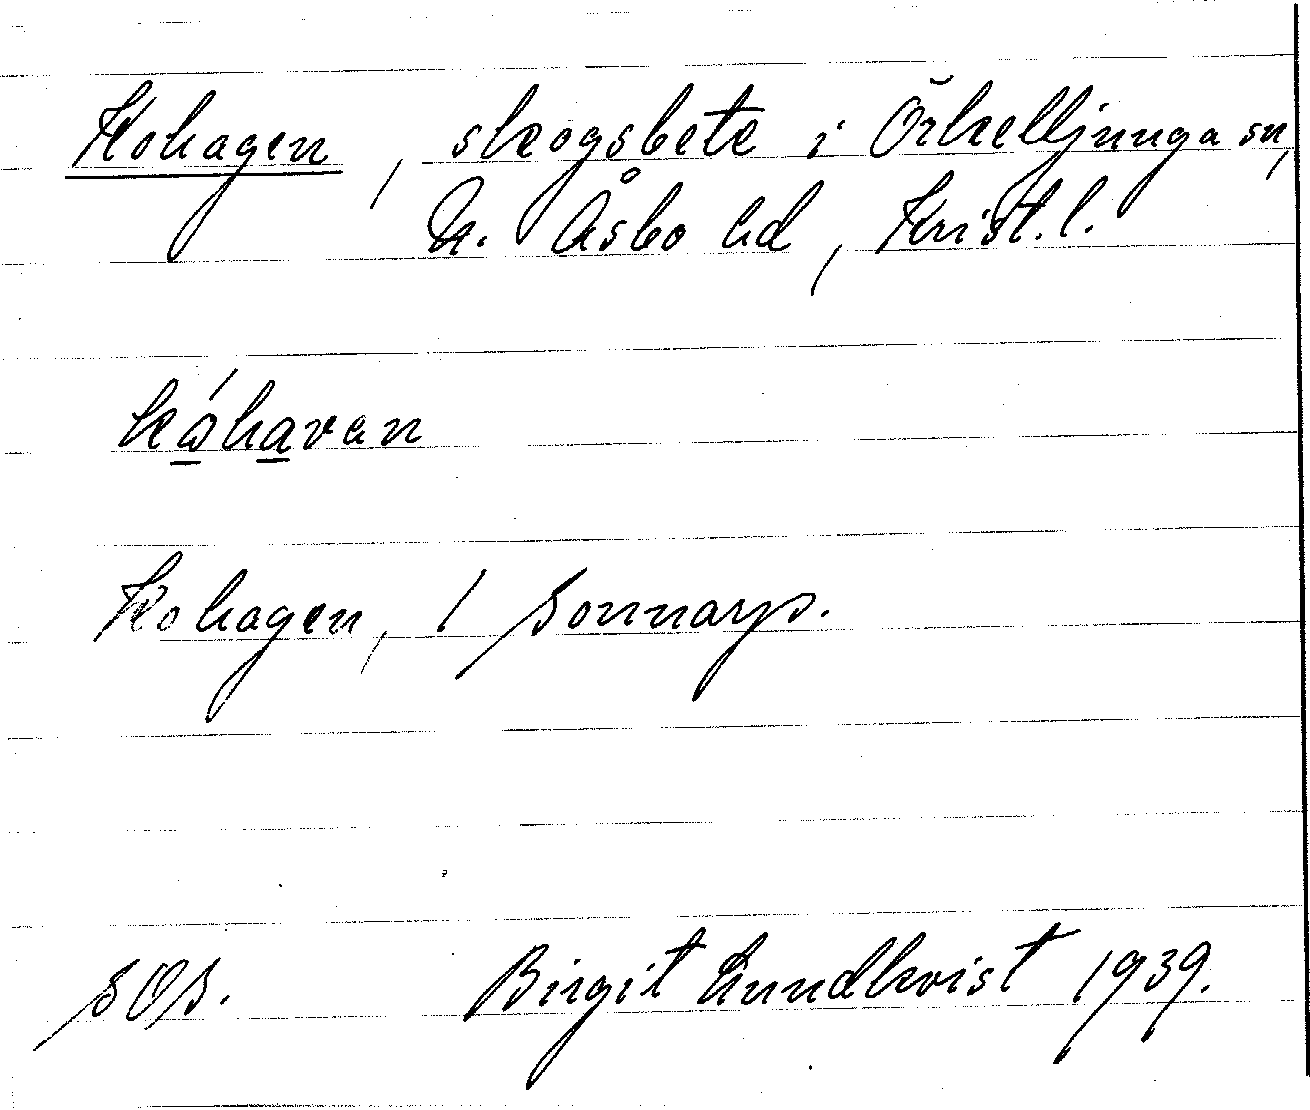 Kohagen, skogsbete i Örkelljunga sn,
N. Åsbo hd, Krist. l.
kóhavan
Kohagen, 1 Sonnarp.
SOS. Birgit Lundkvist 1939.